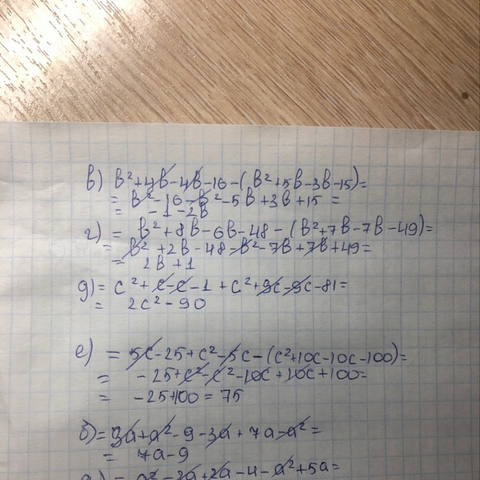 в) b²+4b-4b-16-(b²+5b-3b-15)=
= b²-16-b²-5b+3b+15 =
= -1-2b
г) = b²+8b-6b-48-(b²+7b-7b-49)=
= b²+2b-48-b²-7b+7b+49=
= 2b+1
д)= c²+c-c-1+c²+9c-9c-81=
= 2c²-90
е) = 5c-25+c²-5c-(c²+10c-10c-100)=
= -25+c²-c²-10c+10c+100=
= -25+100=75
б)= 3a+a²-9-3a+7a-a²=
= 7a-9
a)= a²-2a+2a-4-a²+5a=